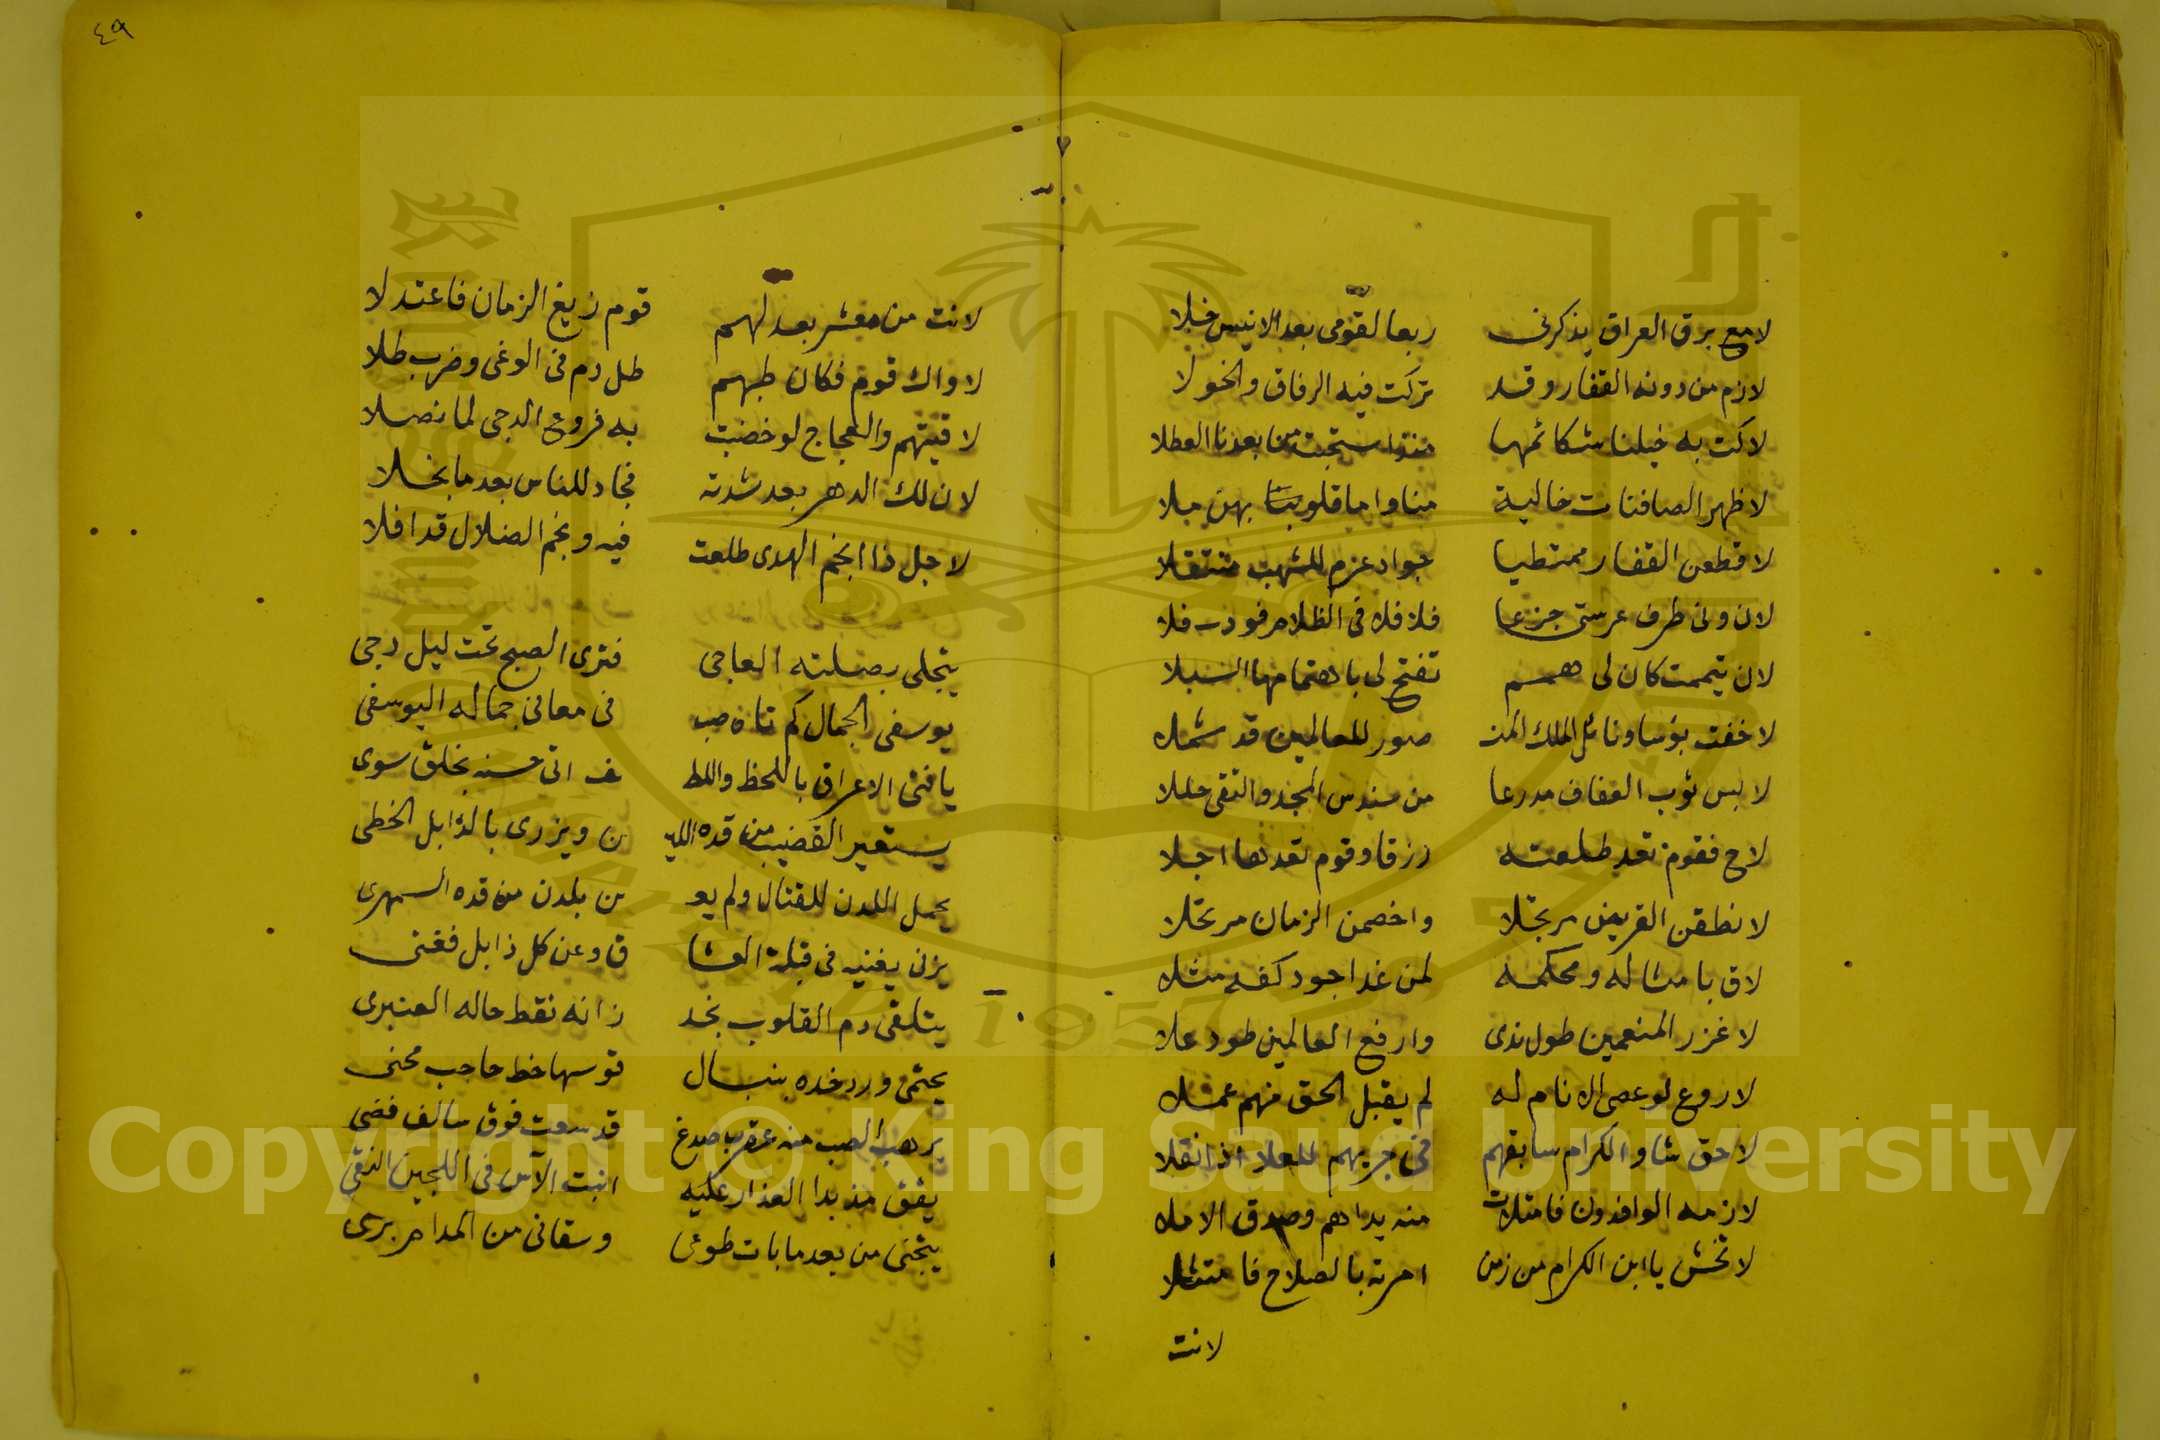 لامع برق العراق يذكرنى ربعا لقومى بعد الانيس خلا
لازم من دونه القفار وقد تركت فيه الرفاق والخولا
لاكت به خيلنا شكائمها بعدنا العطلا
لا ظهر الصافنات خالية منا واما قلوبنا بهن ملا
لاقطعن القفار ممتطيا جواد عزم للشهب منتقلا
لان ونى طرف عرستى جزعا فلا فلاه فى الظلام فوذب فلا
لان تيممت كان لى همم تفتح لى باهتمامها السبلا
لا خفت بؤسا ونائل الملك المنـ صور للعالمين قد شملا
لابس ثوب العفاف مدرعا من سندس المجد والتقى حللا
لاح فقوم تعد طلعته رزقا وقوم تعدها اجلا
لانطقن القريض مرتجلا واخصمن الزمان مرتحلا
لاق بامثاله ومحكمه لمن غدا جود كفه مثلا
لا غزر المنعمين طول ندى وارفع العالمين طود علا
لاروع لو عصى الانام له لم يقبل الحق منهم عملا
لاحق شاو الكرام سابقهم فى جريهم للعلا اذا نقلا
لازمه الوافدون فامتلات منه يداهم وصدق الاملا
لا تخش يا ابن الكرام من زمن امرته بالصلاح فامتثلا
لانت
٤٩
لانت من معشر بعدلهم قوم زيغ الزمان فاعتدلا
لا واك قوم فكان طبهم طل دم فى الوغى وضرب طلا
لاقيتهم والعجاج لو خضبت به فروع الدجى لما نصلا
لان لك الدهر بعد شدته فجاد للناس بعد ما بخلا
لاجل ذا انجم الهدى طلعت فيه ونجم الضلال قد افلا
يتجلى بصلته العاجى فترى الصبح تحت ليل دجى
يوسفى الجمال كم تاه صب فى معانى جماله اليوسفى
يافثى الاعراق باللحظ واللطـ ـف اتى حسنه بخلق سوى
يستعير القضيب من قده الليـ ـن ويزرى بالذابل الخطى
يحمل اللدن للقتال ولم يعـ ـن بلدن من قده السمهرى
يزنى يغنيه فى قبلة العشا ق وعن كل ذابل فغنى
يتلقى دم القلوب بخد زانه نقط خاله العنبرى
يحتمى ورد خده بنبال قوسها خط حاجب محنى
يرهب الصب منه عقرب صدغ قد سعت فوق سالف فضى
يقق مذ بدا العذار عليه انبت الآس فى اللجين النقى
يتجنى من بعد ما بات طوعى وسقانى من المدام برى
Copyright © King Saud University
1957